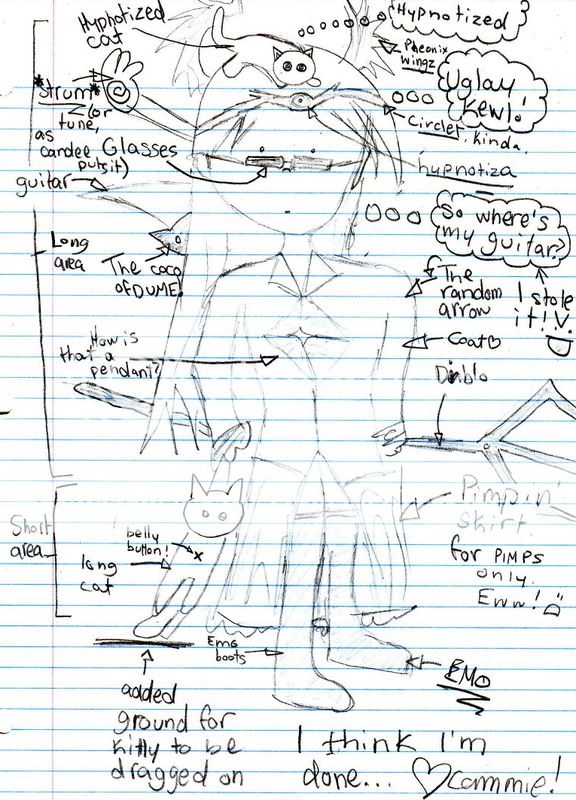 Hypnotized
cat
Hypnotized
Pheonix
wingz
Uglay
kewl!
*Strum*
(or
tune,
as
candee
puts it)
Glasses
Circlet, kinda.
hypnotiza
guitar
So where's
my guitar?
Long
area
The coco
of DUME!
The
random
arrow
I stole
it! V.
Coat♡
How is
that a
pendant?
Diablo
Pimpin'
Skirt
for PIMPS
only.
Eww!
Short
area
belly
button!
x
long
cat
Emo
boots
EMO
added
ground for
kitty to be
dragged on
I think I'm
done... ♡cammie!